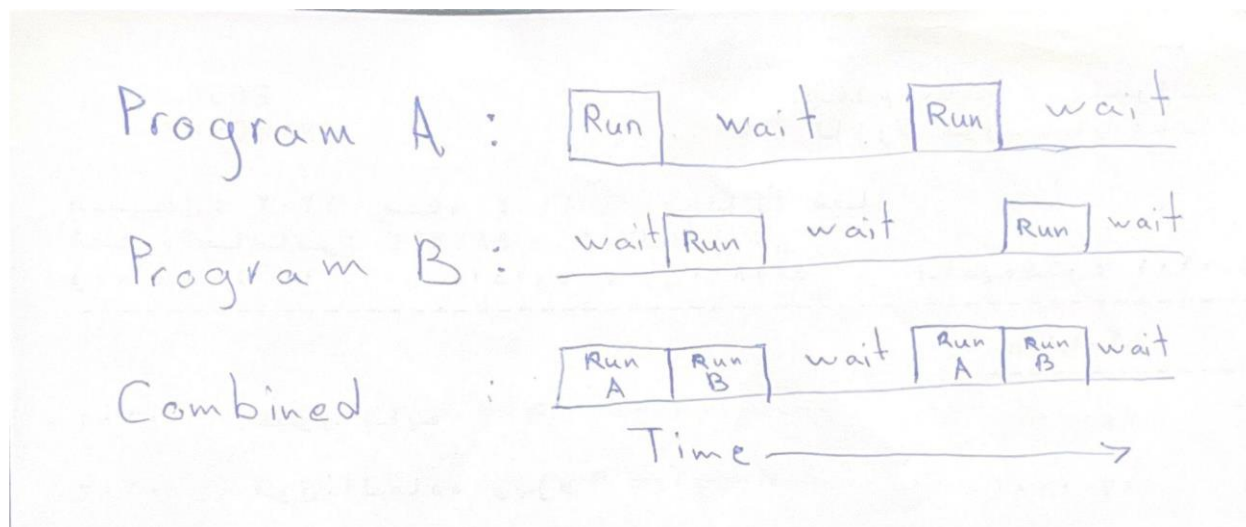 Program A : Run wait Run wait
Program B : wait Run wait Run wait
Combined : Run A Run B wait Run A Run B wait
Time